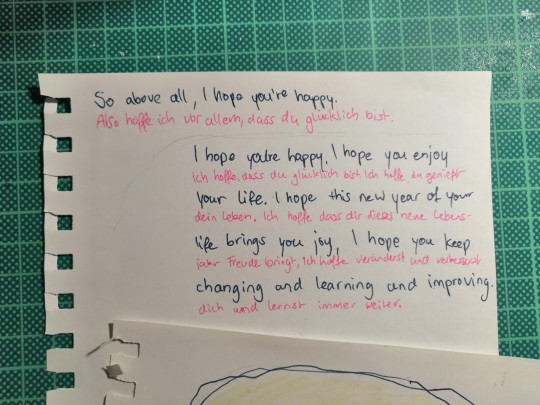 So above all, I hope you're happy.
Also hoffe ich vor allem, dass du glücklich bist.
I hope you're happy. I hope you enjoy
Ich hoffe, dass du glücklich bist. Ich hoffe du genießt
your life. I hope this new year of your
dein Leben. Ich hoffe dass dir dieses neue Lebens-
life brings you joy, I hope you keep
jahr Freude bringt, ich hoffe veränderst und verbesserst
changing and learning and improving.
dich und lernst immer weiter.